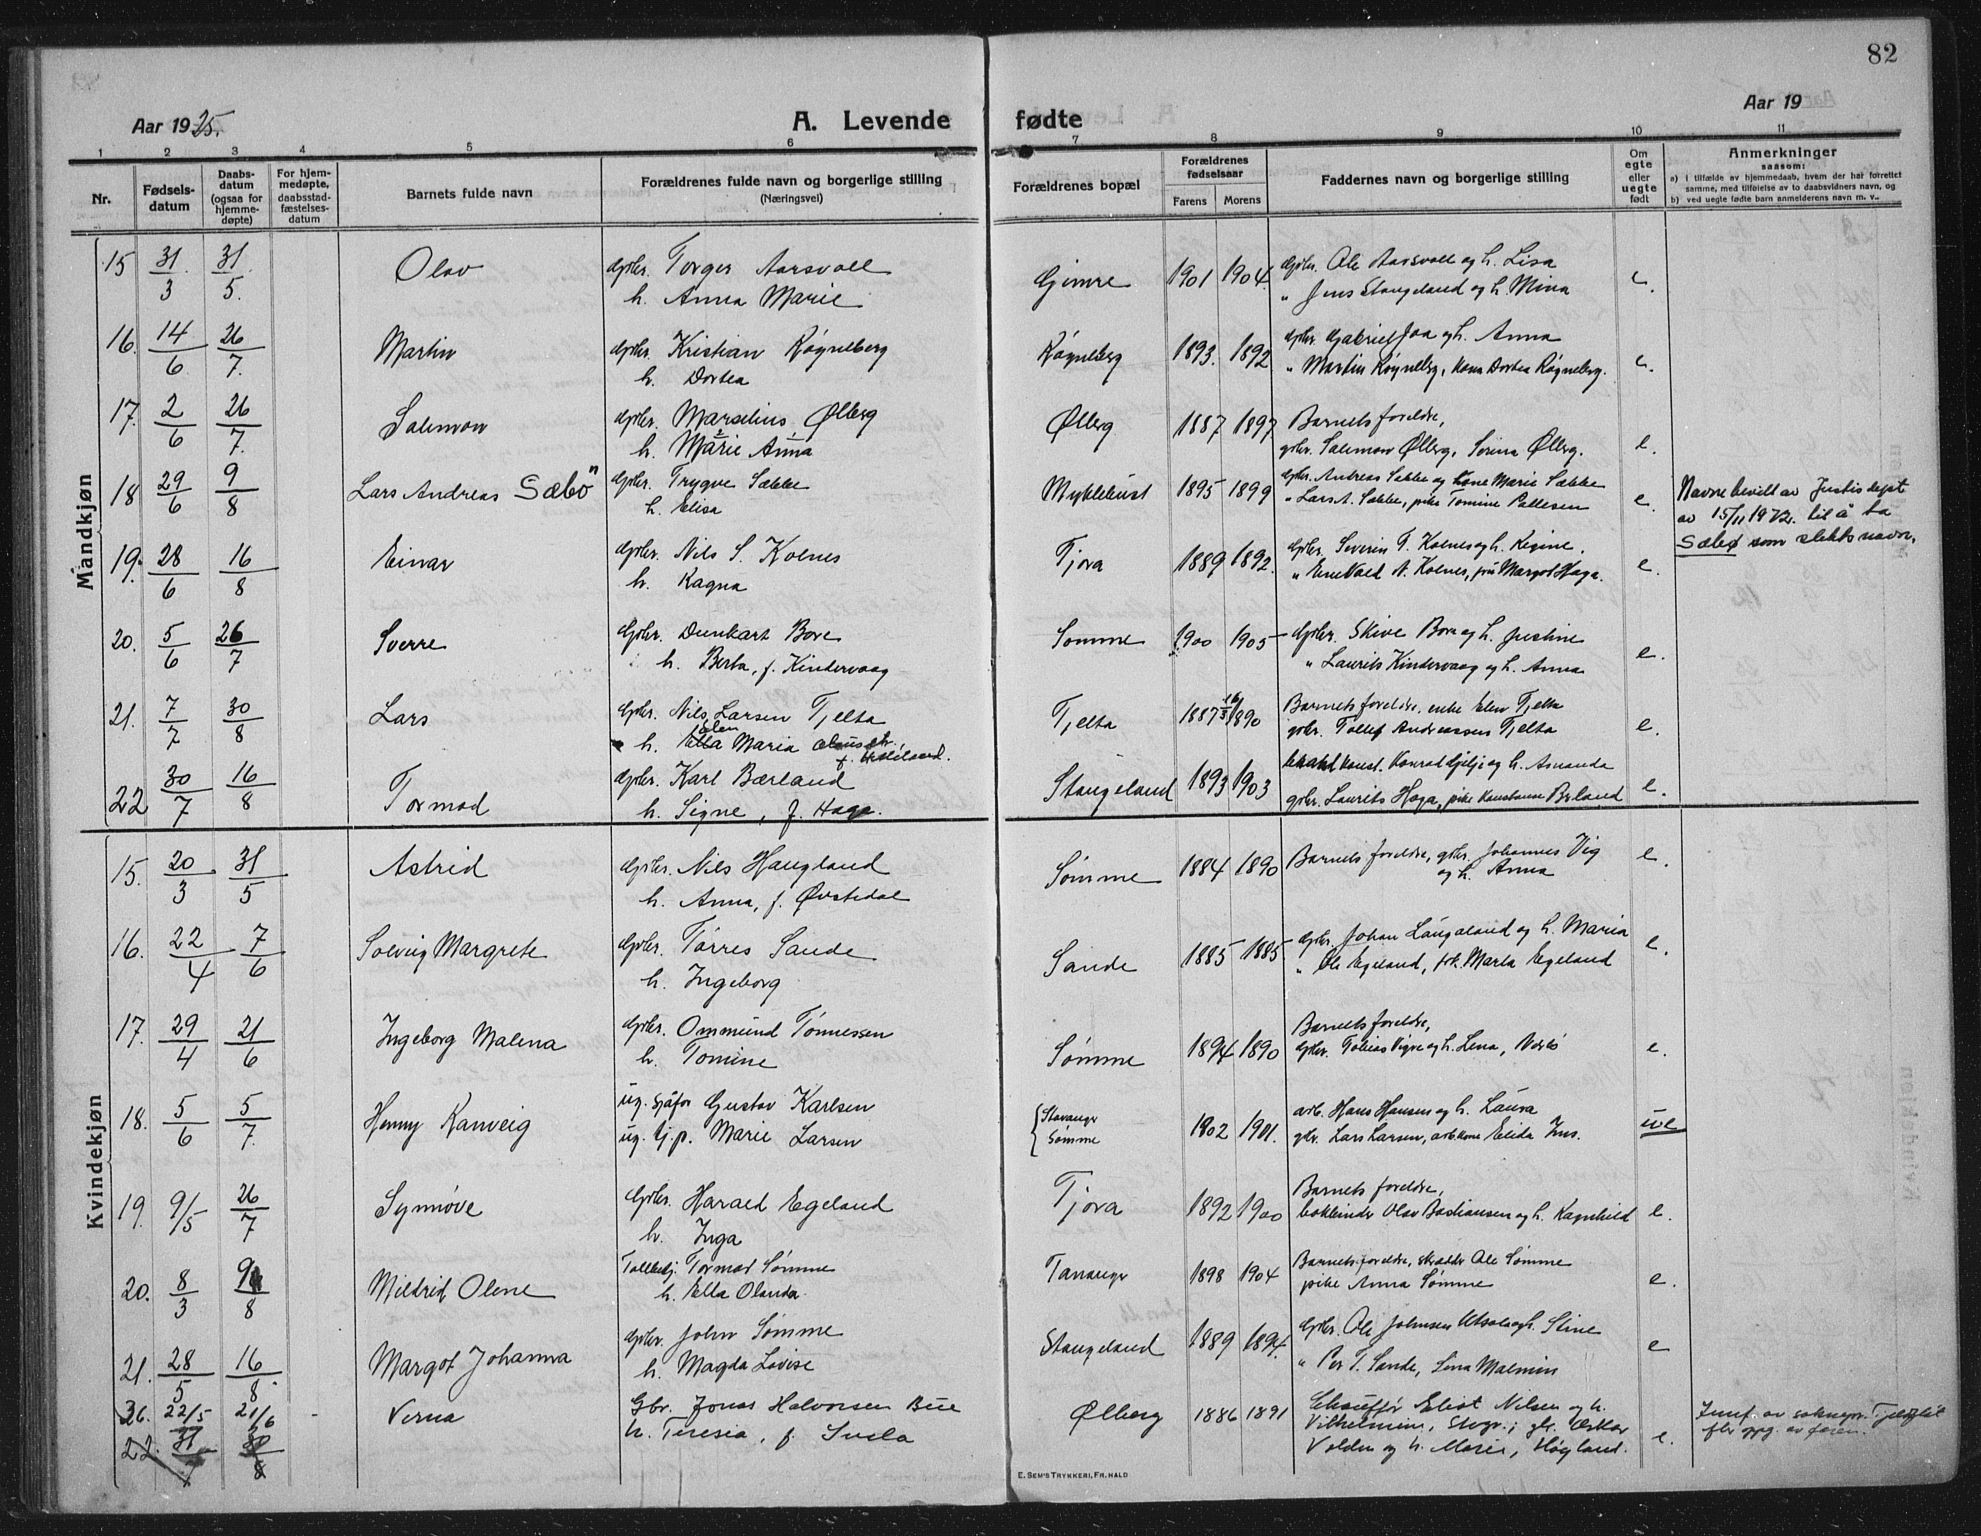 82
Aar 1925.
A. Levende fødte
Aar 19
1 2 3 4 5 6 7 8 9 10 11
Nr.
Fødsels-
datum
Daabs-
datum
(ogsaa for
hjemme-
døpte)
For hjem-
medøpte,
daabsstad-
fæstelses-
datum
Barnets fulde navn
Forældrenes fulde navn og borgerlige stilling
(Næringsvei)
Forældrenes bopæl
Forældrenes
fødselsaar
Farens Morens
Faddernes navn og borgerlige stilling
Om
egte
eller
uegte
født
Anmerkninger
saasom:
a) i tilfælde av hjemmedaab, hvem der har forrettet
samme, med tilføielse av to daabsvidners navn, og
b) ved uegte fødte barn anmelderens navn m. v.
Mandkjøn
15 31/3 31/5. Olav Gbr. Torger Aarsvoll Gimre 1901 1904. Gbr. Ole Aarsvoll og h. Lisa e.
h. Anna Marie " Jens Stangeland og h. Mina
16. 14/6 26/7. Martin Gbr. Kristian Røyneberg Røyneberg 1893. 1892 Gbr. Gabriel Joa og h. Anna e.
h. Dortea " Martin Røyneberg, kona Dortea Røyneberg.
17. 2/6 26/7. Salomon Gbr. Marselius Ølberg Ølberg 1887 1897 Barnets foreldre, e.
h. Marie Anna gbr. Salomon Ølberg, Serina Ølberg.
18 29/6 9/8 Lars Andreas Sæbø Gbr. Trygve Sække Myklebust 1895 1899 Gbr. Andreas Sække og kone Marie Sække e.
h. Elisa " Lars A. Sække, pike Tomine Pallesen
Navnebevilt av Justisdept
av 15/11 19 til å ta
Sæbø som slektsnavn.
19. 28/6 16/8 Einar Gbr. Nils S. Kolnes Tjora 1889 1892. Gbr. Severin T. Kolnes og h. Regine. e.
h. Ragna " Enevald N. Kolnes, frk Margot Haga.
20. 5/6 26/7 Sverre Gbr. Dunkart Bore Sømme 1900 1905 Gbr. Skive Bore og h. Justine e.
h. Berta, f. Kindervaag " Laurits Kindervaag og h. Anna
21. 7/7 30/8 Lars Gbr. Nils Larsen Tjelta Tjelta 1887 1890 Barnets foreldre, enke Elen Tjelta e.
h. Elen Maria gbr. Tollef Andreassen Tjelta
22 30/7 16/8 Tormod Gbr. Karl Bærland Stangeland 1893 1903 Konrad Gjilje og h. Amanda e.
h. Signe, f. Haga. gbr. Laurits Haga, pike Konstanse Berland
Kvindekjøn
15. 20/3 31/5 Astrid Gbr. Nils Haugland Sømme 1884 1890 Barnets foreldre, gbr. Johannes Vig e.
h. Anna, f. Øvstedal og h. Anna
16. 22/4 7/6 Solveig Margrete Gbr. Tørres Sande Sande 1885 1885 Gbr. Johan Laugaland og h. Maria e.
h. Ingeborg " Ole Egeland, frk. Marta Egeland
17. 29/4 21/6 Ingeborg Malena Gbr. Ommund Tønnessen Sømme 1894 1890 Barnets foreldre, e.
h. Tomine Gbr. Tobias Vigre og h. Lena,
18. 5/6 5/7. Henny Ranveig ug. sjåfør Gustav Karlsen Stavanger 1802 1901. arb. Hans Hansen og h. Laura ue
ug. tj.p. Marie Larsen Sømme gbr. Lars Larsen, arb.kone Elida Jns.
19. 9/5 26/7 Synnøve Gbr. Harald Egeland Tjora 1892 1900 Barnets foreldre, e.
h. Inga bokbinder Olav Bastiansen og h. Ragnhild
20. 8/3 9/8 Mildrid Olene Tollbetj. Tormod Sømme Tananger 1898 1904 Barnets foreldre, skredder Ole Sømme e.
h. Ella Olanda pike Anna Sømme
21. 28/5 16/8. Margot Johanna Gbr. John Sømme Stangeland 1889 1894. Gbr. Ole Johnsen Utsola og h. Stine e
h. Magda Lovise " Per T. Sande, Lina Malmin
26. 22/5 21/6 - Verna Gbr. Jonas Halvorsen Bue Ølberg 1886 1891 Chauffør Eliot Nilsen og h. e.
h. Teresia, f. Susla Vilhelmine, Stvgr.; gbr. Oskar
22. 31/7 30/8 Volden og h. Marie, Høgland.
Innf. av soknepr. Tjeldflåt
eftr oppg. av faren.
E. SEM'S TRYKKERI, FR.HALD